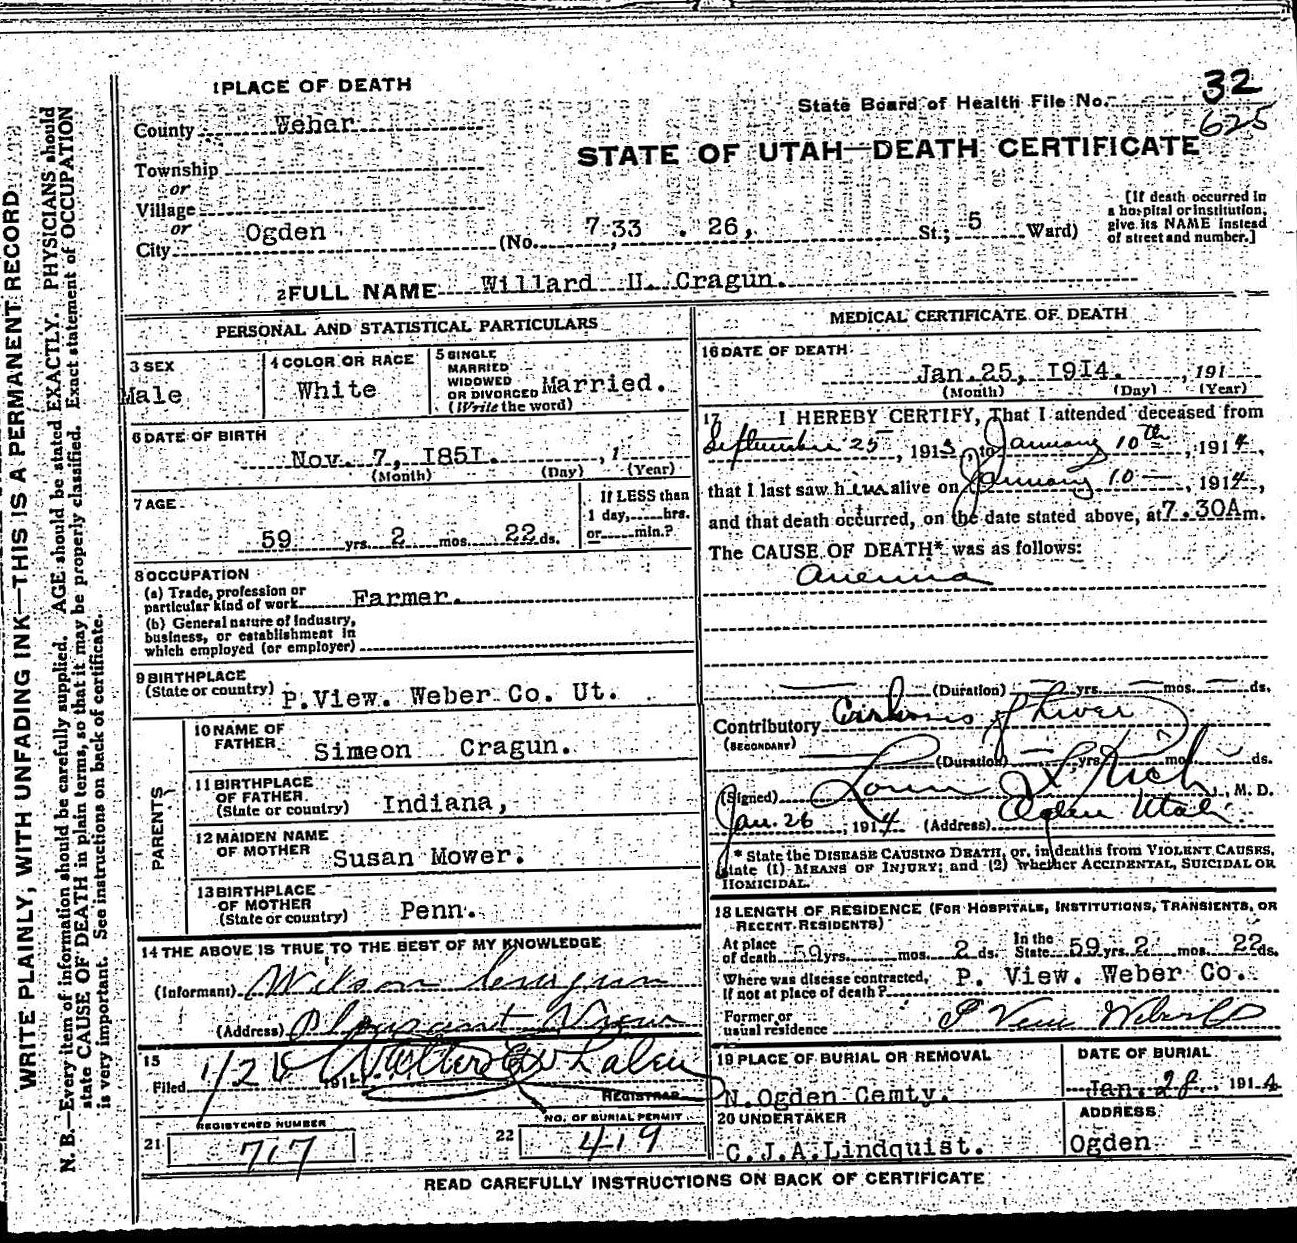 1 PLACE OF DEATH
State Board of Health File No. 32
625
County Weber
STATE OF UTAH—DEATH CERTIFICATE
Township
or
Village
or
City Ogden (No. 733 . 26, St.; 5 Ward)
[If death occurred in
a hospital or institution,
give its NAME instead
of street and number.]
2 FULL NAME Willard H. Cragun.
PERSONAL AND STATISTICAL PARTICULARS
3 SEX
Male
4 COLOR OR RACE
White
5 SINGLE
MARRIED
WIDOWED
OR DIVORCED Married.
(Write the word)
6 DATE OF BIRTH
Nov. 7, 1851. , 1
(Month) (Day) (Year)
7 AGE
59 yrs. 2 mos. 22 ds.
If LESS than
1 day, hrs.
or min.?
8 OCCUPATION
(a) Trade, profession or
particular kind of work Farmer.
(b) General nature of industry,
business, or establishment in
which employed (or employer)
9 BIRTHPLACE
(State or country) P.View. Weber Co. Ut.
PARENTS
10 NAME OF
FATHER Simeon Cragun.
11 BIRTHPLACE
OF FATHER
(State or country) Indiana,
12 MAIDEN NAME
OF MOTHER Susan Mower.
13 BIRTHPLACE
OF MOTHER
(State or country) Penn.
14 THE ABOVE IS TRUE TO THE BEST OF MY KNOWLEDGE
(Informant) Wilson Cragun
(Address) Pleasant View
15
Filed 1/26 191
REGISTRAR
REGISTERED NUMBER
21 717
NO. OF BURIAL PERMIT
22 419
MEDICAL CERTIFICATE OF DEATH
16 DATE OF DEATH
Jan.25, 1914. , 191
(Month) (Day) (Year)
17 I HEREBY CERTIFY, That I attended deceased from
September 25 , 1913, to January 10th , 1914,
that I last saw him alive on January 10 , 1914,
and that death occurred, on the date stated above, at 7.30A m.
The CAUSE OF DEATH* was as follows:
Anemia
(Duration) yrs. mos. ds.
Contributory Cirrhosis of Liver
(SECONDARY)
(Duration) yrs. mos. ds.
(Signed) Rich , M. D.
Jan. 26 , 1914 (Address) Ogden Utah
* State the DISEASE CAUSING DEATH, or, in deaths from VIOLENT CAUSES,
state (1) MEANS OF INJURY; and (2) whether ACCIDENTAL, SUICIDAL OR
HOMICIDAL.
18 LENGTH OF RESIDENCE (FOR HOSPITALS, INSTITUTIONS, TRANSIENTS, OR
RECENT RESIDENTS)
At place
of death 59 yrs. mos. 2 ds. In the
State 59 yrs. 2 mos. 22 ds.
Where was disease contracted,
If not at place of death? P. View. Weber Co.
Former or
usual residence P View Weber Co
19 PLACE OF BURIAL OR REMOVAL
N.Ogden Cemty.
DATE OF BURIAL
Jan. 28 , 1914
20 UNDERTAKER
C.J.A.Lindquist.
ADDRESS
Ogden
READ CAREFULLY INSTRUCTIONS ON BACK OF CERTIFICATE
WRITE PLAINLY, WITH UNFADING INK—THIS IS A PERMANENT RECORD
N. B.—Every item of information should be carefully supplied. AGE should be stated EXACTLY. PHYSICIANS should
state CAUSE OF DEATH in plain terms, so that it may be properly classified. Exact statement of OCCUPATION
is very important. See instructions on back of certificate.